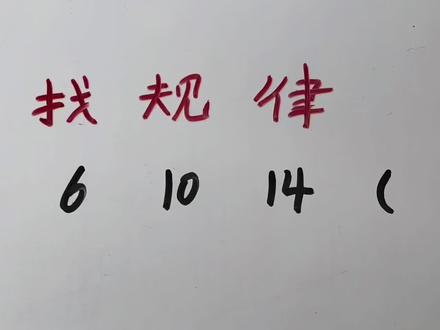 找规律
6 10 14 (